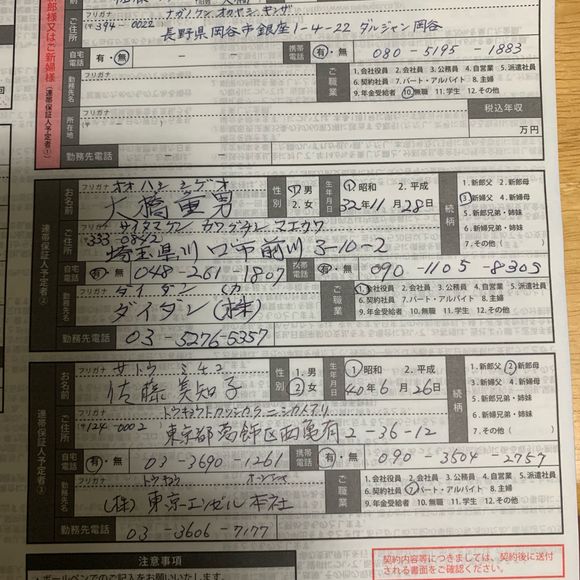 フリガナ ナガノケン オカヤシ ギンザ
ご住所 (〒394-0022)
長野県岡谷市銀座1-4-22 ダルジャン岡谷
自宅電話 有・無
携帯電話 有・無 080-5195-1883
フリガナ
勤務先名
ご職業 1.会社役員 2.会社員 3.公務員 4.自営業 5.派遣社員
6.契約社員 7.パート・アルバイト 8.主婦
9.年金受給者 10.無職 11.学生 12.その他
フリガナ
所在地 (〒
税込年収
万円
勤務先電話
フリガナ オオハシ シゲオ
お名前 大橋重男
性別 1.男 2.女
生年月日 1.昭和 2.平成
32年11月28日
続柄 1.新郎父 2.新郎母
3.新婦父 4.新婦母
5.新郎兄弟・姉妹
6.新婦兄弟・姉妹
7.その他( )
連帯保証人予定者②
フリガナ サイタマケン カワグチシ マエカワ
ご住所 〒333-0842
埼玉県川口市前川 3-10-2
自宅電話 有・無 048-261-1807
携帯電話 有・無 090-1105-8303
フリガナ ダイダン (カ
勤務先名 ダイダン(株)
ご職業 1.会社役員 2.会社員 3.公務員 4.自営業 5.派遣社員
6.契約社員 7.パート・アルバイト 8.主婦
9.年金受給者 10.無職 11.学生 12.その他
勤務先電話 03-5276-5357
フリガナ サトウ ミチコ
お名前 佐藤美知子
性別 1.男 2.女
生年月日 1.昭和 2.平成
40年6月26日
続柄 1.新郎父 2.新郎母
3.新婦父 4.新婦母
5.新郎兄弟・姉妹
6.新婦兄弟・姉妹
7.その他( )
連帯保証人予定者③
フリガナ トウキョウトカツシカクニシカメアリ
ご住所 〒124-0002
東京都葛飾区西亀有2-36-12
自宅電話 有・無 03-3690-1261
携帯電話 有・無 090-3504-2757
フリガナ トウキョウ
勤務先名 (株)東京エンゼル本社
ご職業 1.会社役員 2.会社員 3.公務員 4.自営業 5.派遣社員
6.契約社員 7.パート・アルバイト 8.主婦
9.年金受給者 10.無職 11.学生 12.その他
勤務先電話 03-3606-7177
注意事項
・ボールペンでのご記入をお願いいたします。
契約内容等につきましては、契約後に送付
される書面をご確認ください。